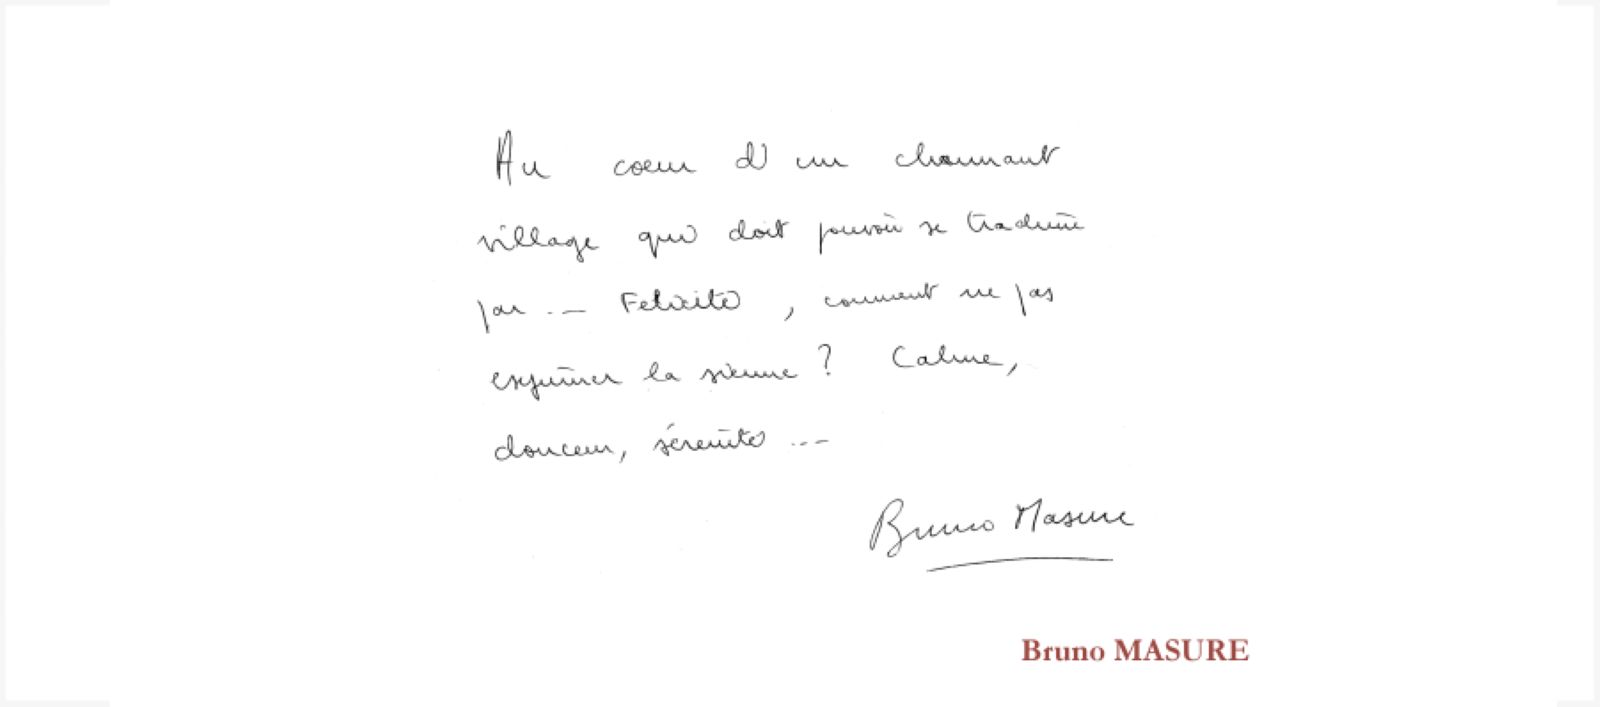 Au coeur d'un charmant
village qui doit pouvoir se traduire
par ... Felicité, comment ne pas
exprimer la sienne ? Calme,
douceur, sérénité ...
Bruno Masure
Bruno MASURE